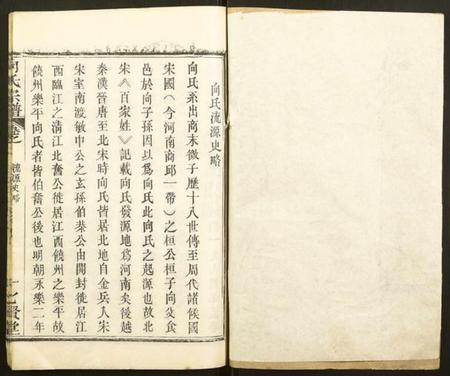 向氏流源史略
向氏系出商末微子歷十八世傳至周代諸候國
宋國（今河南商邱一帶）之桓公桓子向父食
邑於向子孫因以爲向氏此向氏之起源也故北
宋《百家姓》記載向氏發源地爲河南矣後越
秦漢晉唐至北宋時向氏皆居北地自金兵入宋
宋室南渡敏中公之玄孫伯秦公由開封徙居江
西臨江之清江北奮公徙居江西饒州之樂平故
饒州樂平向氏者皆伯奮公後也明朝永樂二年
向氏宗譜
流源史略
一
七賢堂